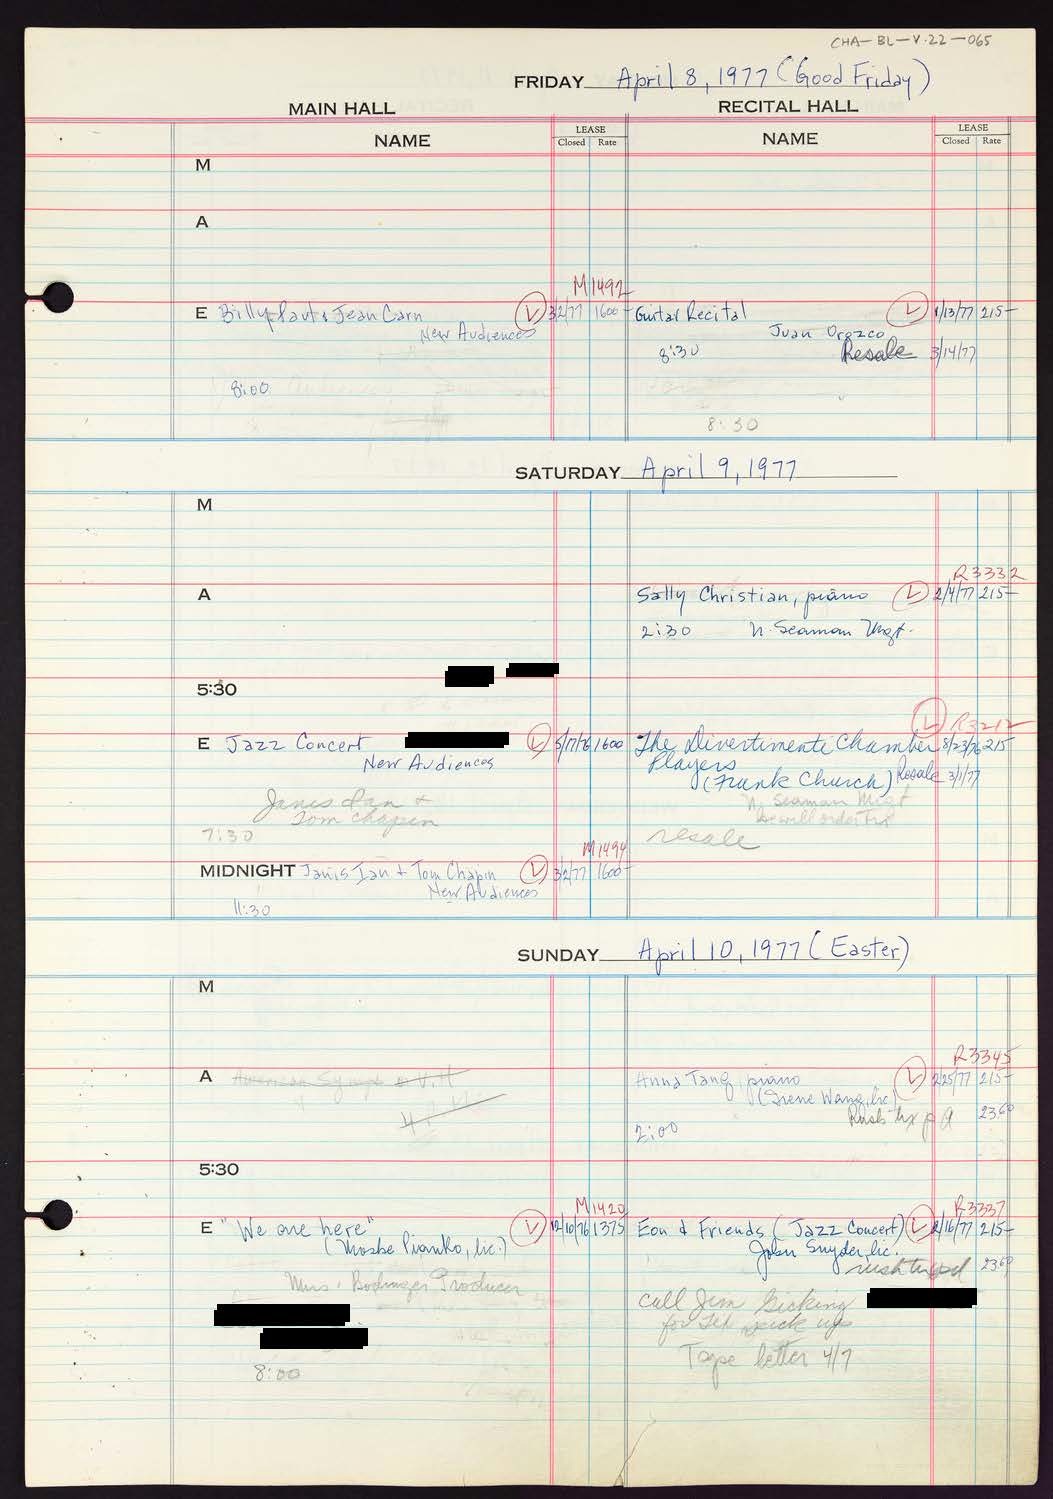 CHA-BL-V.22-065
FRIDAY April 8, 1977 (Good Friday)
MAIN HALL
RECITAL HALL
NAME
LEASE
Closed Rate
NAME
LEASE
Closed Rate
M
A
M1492
E Billy Paul & Jean Carn L 3/2/77 1600-
New Audiences
8:00
Guitar Recital L 1/13/77 215-
Juan Orozco
8:30 Resale 3/14/77
8:30
SATURDAY April 9, 1977
M
R3332
A
Sally Christian, piano L 2/4/77 215-
2:30 N. Seaman Mgt.
5:30
E Jazz Concert L 5/17/76 1600
New Audiences
Janis Ian +
Tom Chapin
7:30
L R3212
The Divertimenti Chamber 8/23/76 215
Players
(Frank Church) Resale 3/1/77
N. Seaman Mgt
he will order Tx
resale
M1494
MIDNIGHT Janis Ian + Tom Chapin L 3/2/77 1600-
New Audiences
11:30
SUNDAY April 10, 1977 (Easter)
M
A American Symph
R3345
Anna Tang, piano L 2/25/77 215-
(Irene Wang, lic)
Rush tx 23.60
2:00
5:30
M1420
E "We are here" L 12/10/76 1375
(Moshe Pianko, lic.)
Mrs. Producer
8:00
R3337
Eon & Friends (Jazz Concert) L 2/16/77 215-
John Snyder, lic.
rush 23.60
call Jim Gicking
for pick up
Tape letter 4/7